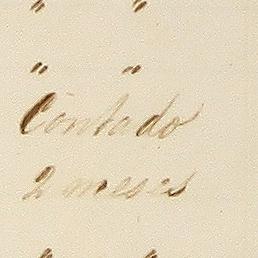 " "
" "
Contado
2 meses
" "